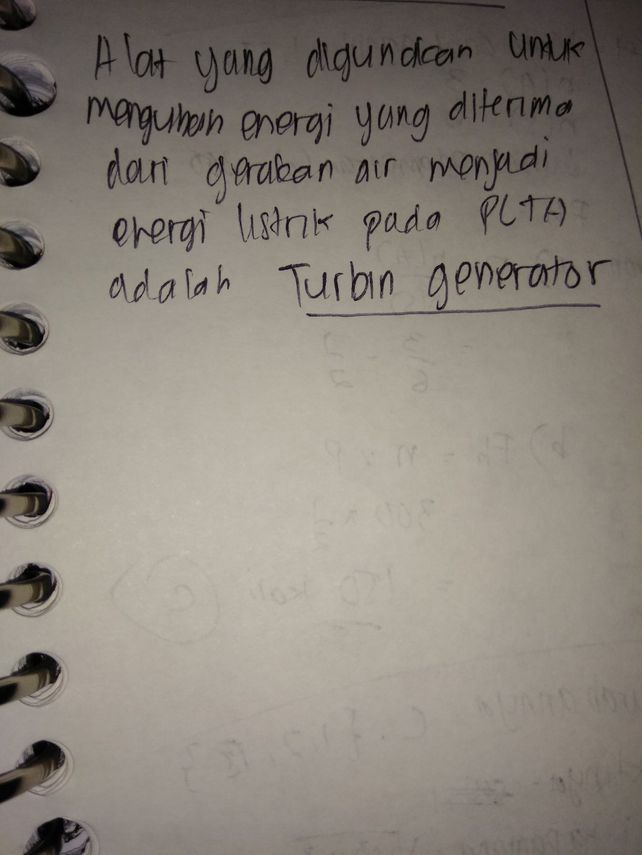 Alat yang digunakan untuk
mengubah energi yang diterima
dari gerakan air menjadi
energi listrik pada PLTA
adalah Turbin generator